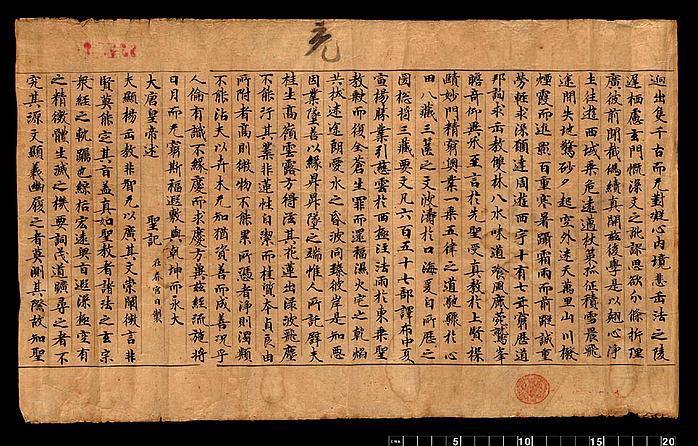 迥出隻千古而无對凝心內境悲正法之陵
遲栖慮玄門慨深文之訛謬思欲分條析理
廣彼前聞截偽續真開茲後學是以翹心淨
土往遊西域乘危遠邁杖策孤征積雪晨飛
途間失地驚砂夕起空外迷天萬里山川撥
煙霞而進影百重寒暑躡霜雨而前蹤誠重
勞輕求深願達周遊西宇十有七年窮歷道
邦詢求正教雙林八水味道飡風鹿菀鷲峯
瞻奇仰異承至言於先聖受真教於上賢探
賾妙門精窮奧業一乘五律之道馳驟於心
田八藏三篋之文波濤於口海爰自所歷之
國揔將三藏要文凡六百五十七部譯布中夏
宣揚勝業引慈雲於西極注法雨於東垂聖
教缺而復全蒼生罪而還福濕火宅之乾焰
共拔迷途朗愛水之昏波同臻彼岸是知惡
因業墜善以緣昇昇墜之端惟人所託譬夫
桂生高嶺雲露方得泫其花蓮出淥波飛塵
不能汙其葉非蓮性自潔而桂質本貞良由
所附者高則微物不能累所憑者淨則濁類
不能沾夫以卉木无知猶資善而成善況乎
人倫有識不緣慶而求慶方冀茲經流施將
日月而无窮斯福遐敷與乾坤而永大
大唐皇帝述 聖記 在春宮日製
夫顯揚正教非智无以廣其文崇闡微言非
賢莫能定其旨蓋真如聖教者諸法之玄宗
眾經之軌躅也綜括宏遠奧旨遐深極空有
之精微體生滅之機要詞茂道曠尋之者不
究其源文顯義幽履之者莫測其際故知聖